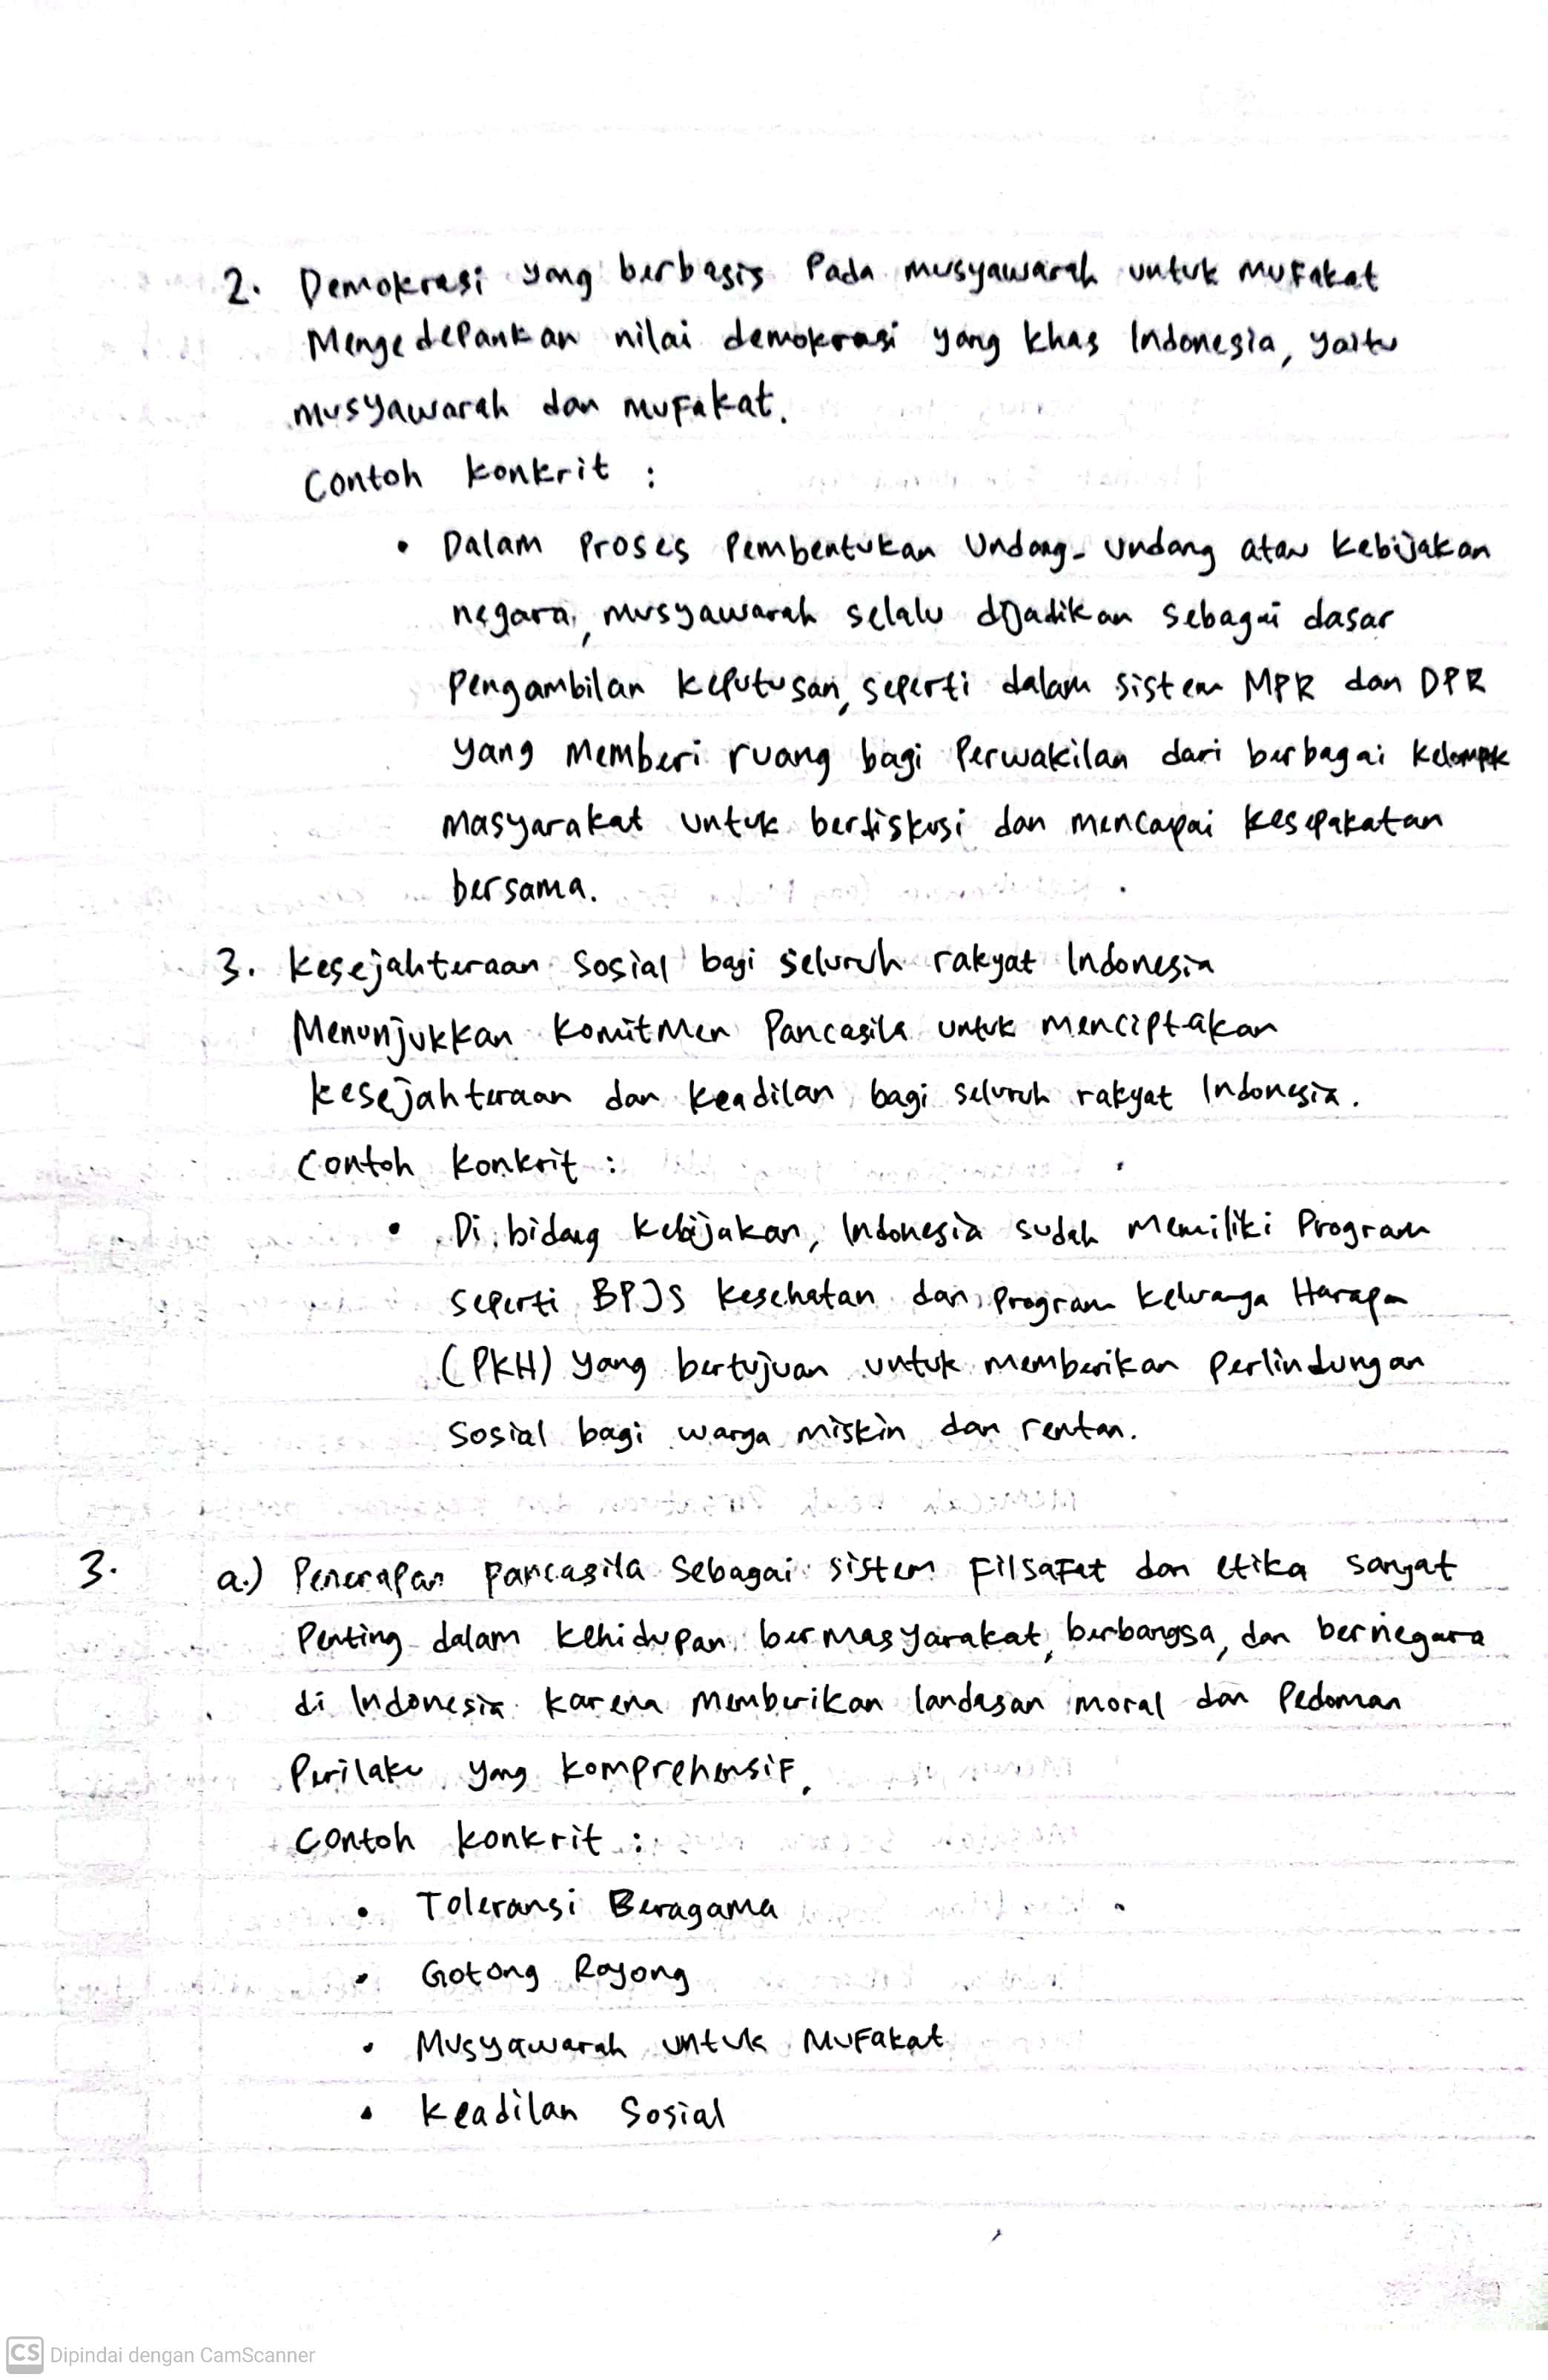 2. Demokrasi yang berbasis Pada musyawarah untuk mufakat
Mengedepankan nilai demokrasi yang khas Indonesia, yaitu
musyawarah dan mufakat.
Contoh konkrit :
• Dalam Proses Pembentukan Undang-Undang atau kebijakan
negara, musyawarah selalu dijadikan sebagai dasar
Pengambilan keputusan, seperti dalam sistem MPR dan DPR
yang Memberi ruang bagi Perwakilan dari berbagai kelompok
masyarakat untuk berdiskusi dan mencapai kesepakatan
bersama.
3. Kesejahteraan Sosial bagi seluruh rakyat Indonesia
Menunjukkan Komitmen Pancasila untuk menciptakan
kesejahteraan dan keadilan bagi seluruh rakyat Indonesia.
Contoh Konkrit :
• Di bidang kebijakan, Indonesia sudah Memiliki Program
Seperti BPJS kesehatan dan Program Keluarga Harapan
(PKH) yang bertujuan untuk memberikan Perlindungan
Sosial bagi warga miskin dan rentan.
3. a.) Penerapan Pancasila Sebagai sistem Filsafat dan etika sangat
Penting dalam kehidupan bermasyarakat, berbangsa, dan bernegara
di Indonesia karena Memberikan landasan moral dan Pedoman
Perilaku yang komprehensif.
Contoh konkrit :
• Toleransi Beragama
• Gotong Royong
• Musyawarah untuk Mufakat
• Keadilan Sosial
CS Dipindai dengan CamScanner